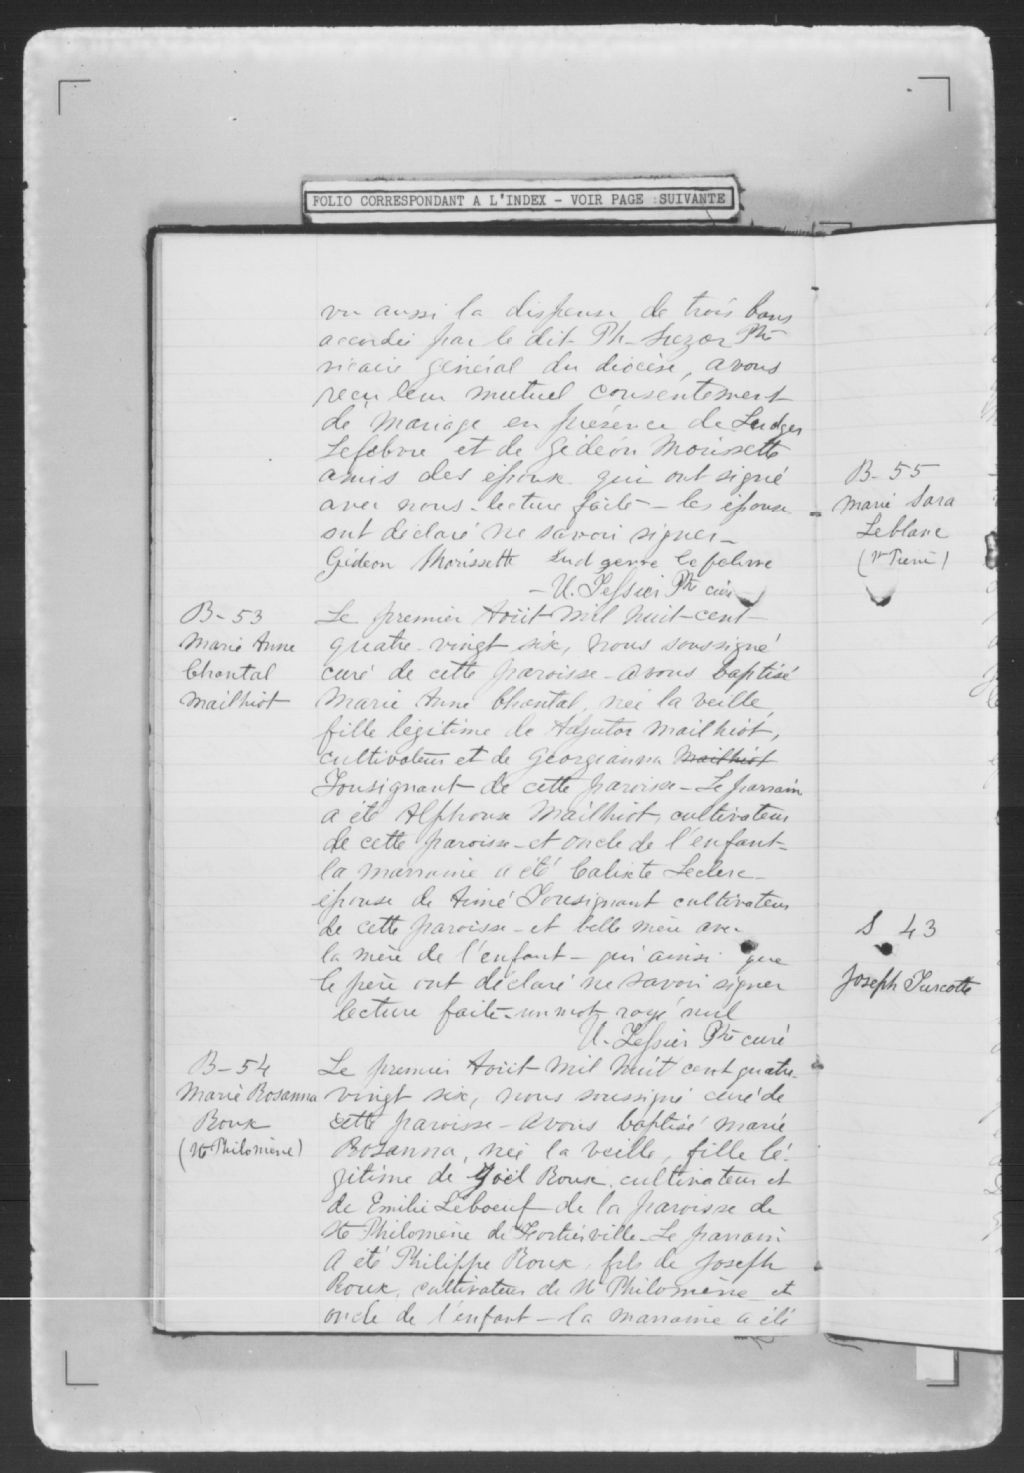 FOLIO CORRESPONDANT A L'INDEX - VOIR PAGE SUIVANTE
vu aussi la dispense de trois bans
accordée par le dit Ph. Suzor Ptre
vicaire général du diocèse, avons
reçu leur mutuel consentement
de mariage en présence de Ludger
Lefebvre et de Gédéon Morissette
amis des époux qui ont signé
avec nous - lecture faite - les époux
ont déclaré ne savoir signer -
Gédeon Morissette Ludgerre Lefebvre
- U. Tessier Ptre curé
B-53
Marie Anne
Chantal
Mailhiot
Le premier Août mil huit-cent
quatre-vingt six, nous soussigné
curé de cette paroisse - avons baptisé
Marie Anne Chantal, née la veille,
fille légitime de Adjutor Mailhiot,
cultivateur et de Georgianna Mailhiot
Tousignant de cette paroisse - Le parrain
a été Alphonse Mailhiot, cultivateur
de cette paroisse - et oncle de l'enfant -
la marraine a été Calixte Leclerc -
épouse de Aimé Tousignant cultivateur
de cette paroisse - et belle mère avec
la mère de l'enfant - qui ainsi que
le père ont déclaré ne savoir signer
lecture faite - un mot rayé nul
U. Tessier Ptre curé
B-54
Marie Rosanna
Roux
(Ste Philomène)
Le premier Août mil huit cent quatre-
vingt six, nous soussigné curé de
cette paroisse - avons baptisé Marie
Rosanna, née la veille, fille lé-
gitime de Joël Roux, cultivateur et
de Emilie Leboeuf de la paroisse de
Ste Philomène de Fortierville - Le parrain
a été Philippe Roux, fils de Joseph
Roux, cultivateur de Ste Philomène et
oncle de l'enfant - la marraine a été
B-55
Marie Sara
Leblanc
(St Pierre)
S 43
Joseph Turcotte